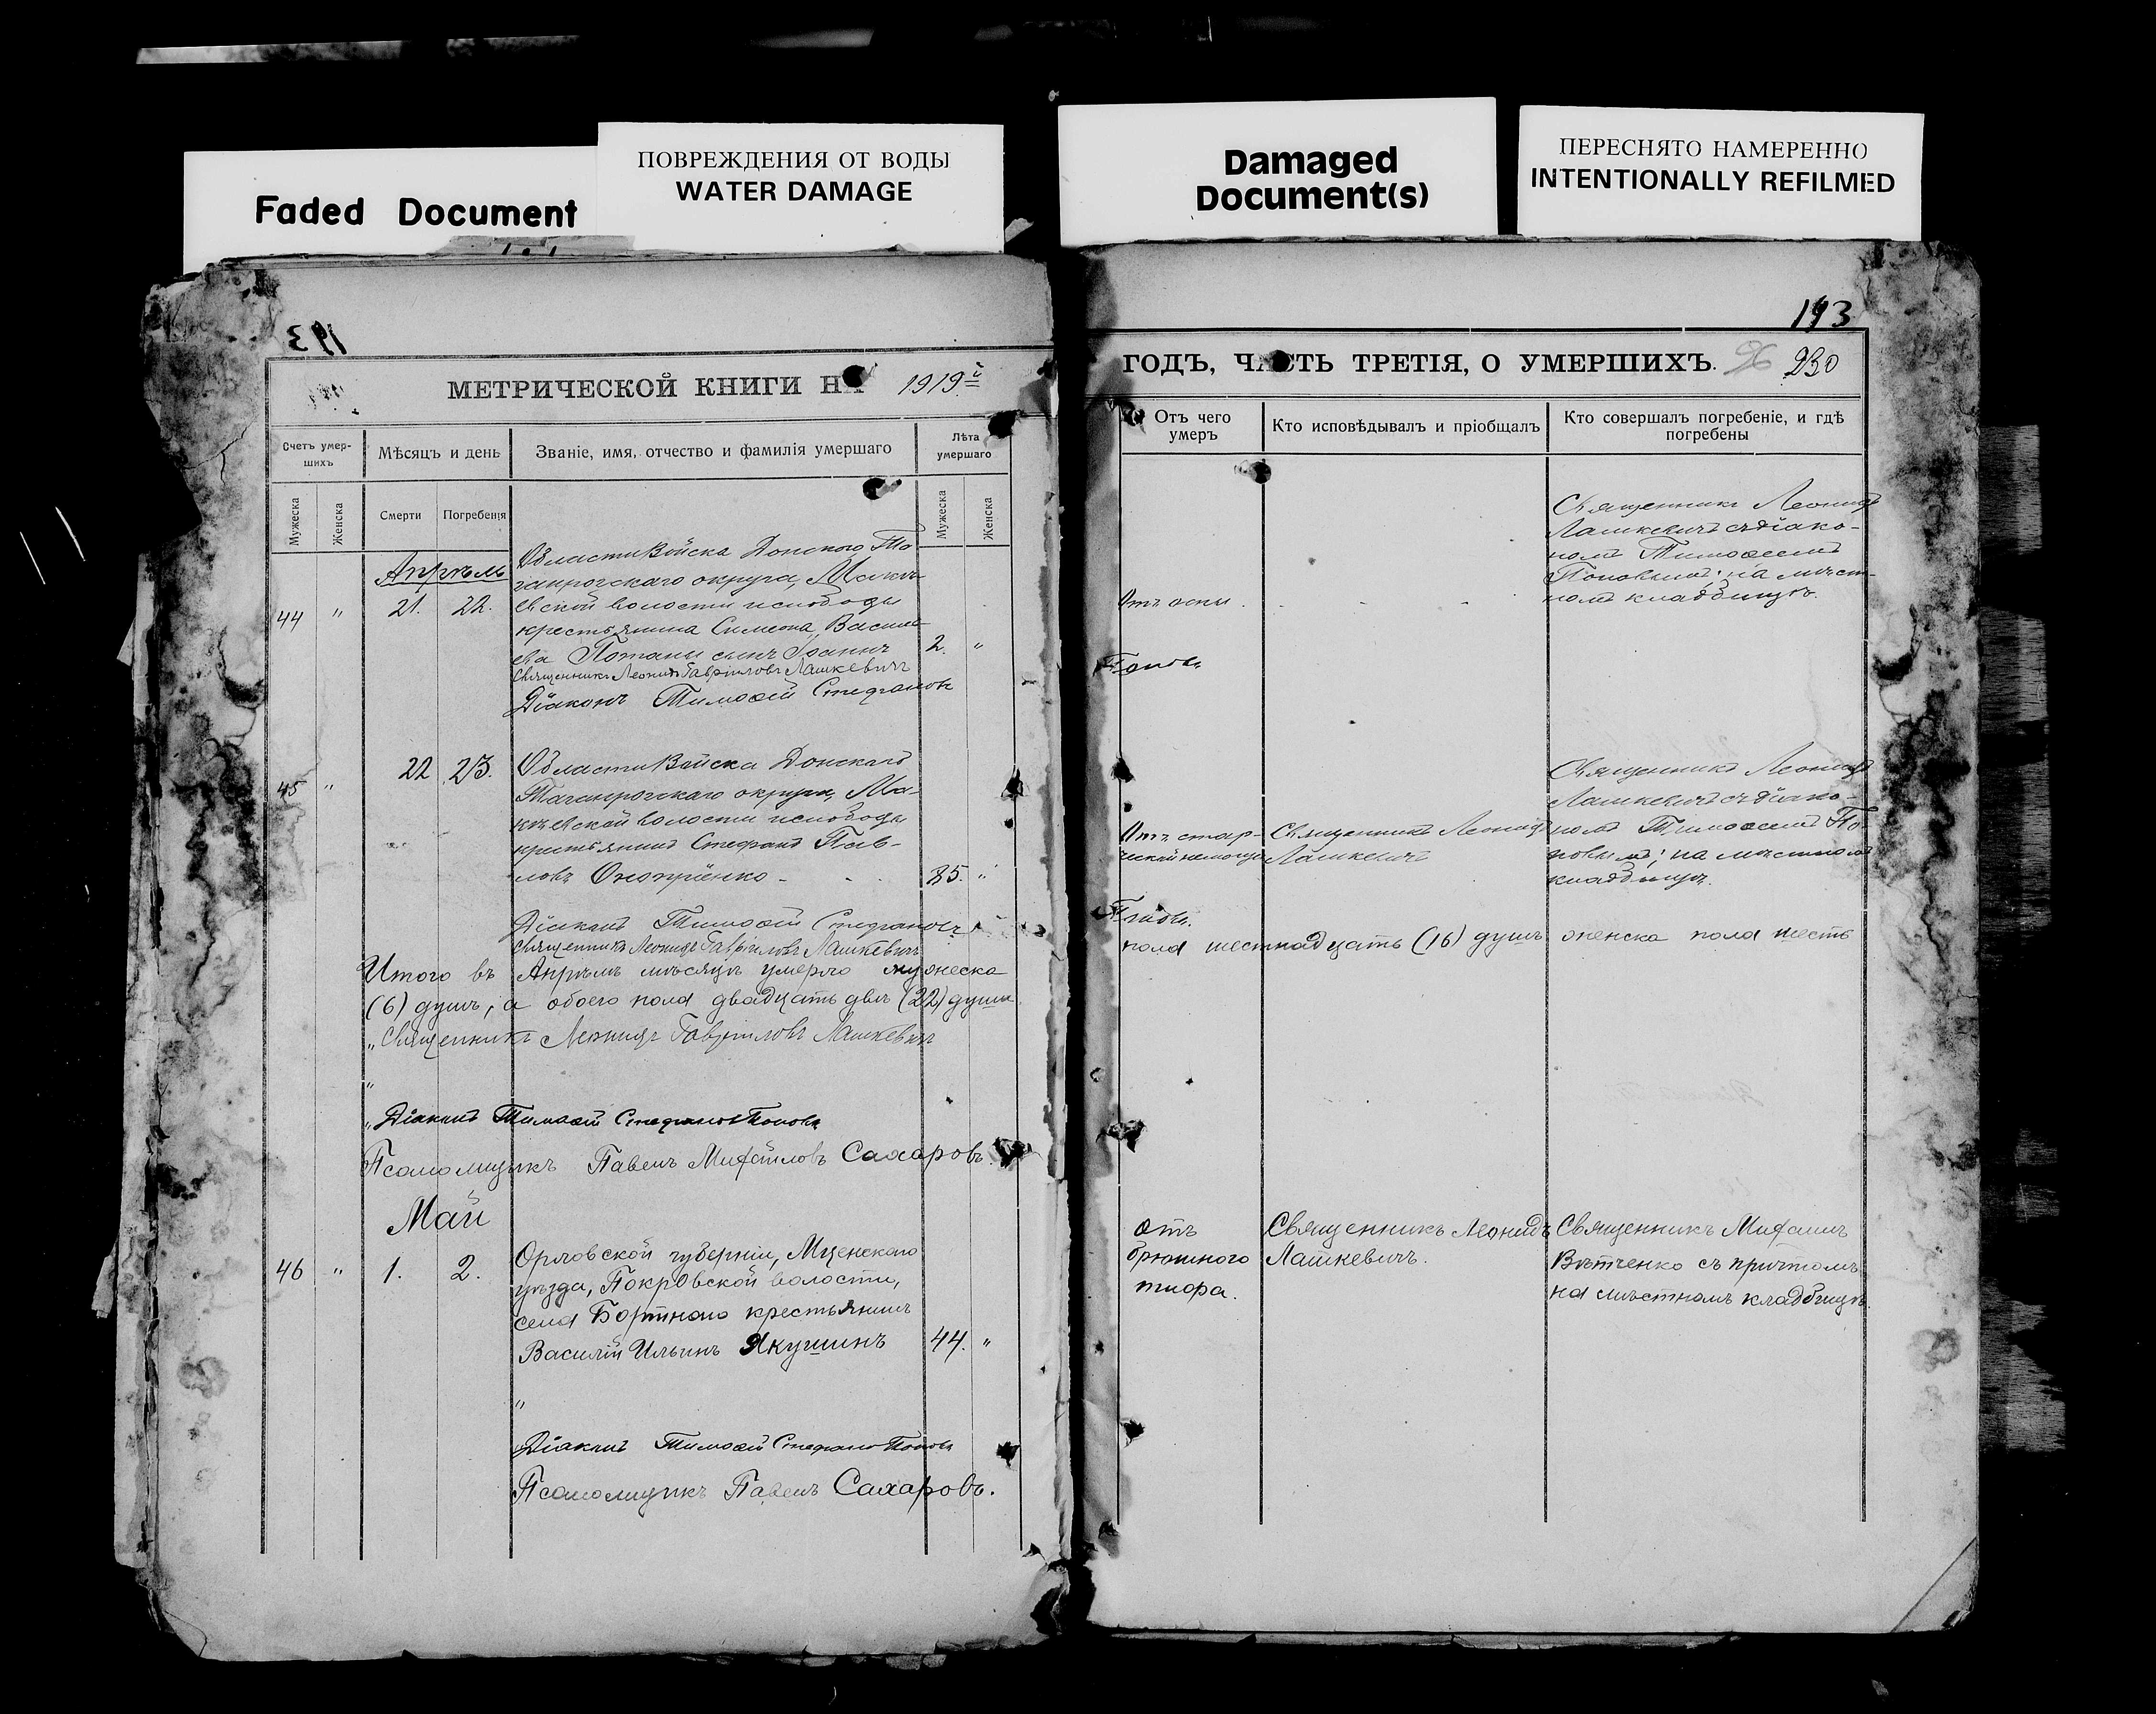 Faded Document
ПОВРЕЖДЕНИЯ ОТ ВОДЫ
WATER DAMAGE
Damaged
Document(s)
ПЕРЕСНЯТО НАМЕРЕННО
INTENTIONALLY REFILMED
193
МЕТРИЧЕСКОЙ КНИГИ НА 1919й
Счетъ умер-
шихъ
Мѣсяцъ и день
Званіе, имя, отчество и фамилія умершаго
Лѣта
умершаго
Мужеска
Женска
Смерти
Погребенія
Мужеска
Женска
Апрѣль
44 " 21. 22.
Области Войска Донского Та
ганрогскаго округа, Макѣ-
евской волости и слободы
крестьянина Симеона Василь-
ева Потапы сынъ Іоаннъ 2. "
Священникъ Леонидъ Гавріиловъ Лашкевичъ
Діаконъ Тимоѳей Стефановъ
45 " 22 23.
Области Войска Донскаго
Таганрогскаго округа, Ма-
кѣевской волости и слободы
крестьянинъ Стефанъ Пав-
ловъ Оноприенко - 85. "
Діаконъ Тимоѳей Стефановъ
Священникъ Леонидъ Гавріиловъ Лашкевичъ
Итого въ Апрѣлѣ мѣсяцѣ умерло мужеска
(6) душъ, а обоего пола двадцать двѣ (22) души
"Священникъ Леонидъ Гавріиловъ Лашкевичъ
"
"Діаконъ Тимоѳей Стефановъ Поповъ
Псаломщикъ Павелъ Михайловъ Сахаровъ.
Май
46 " 1. 2.
Орловской губерніи, Мценскаго
уѣзда, Покровской волости,
села Бортного крестьянинъ
Василій Ильинъ Якушинъ 44. "
"
Діаконъ Тимоѳей Стефановъ Поповъ
Псаломщикъ Павелъ Сахаровъ.
193
ГОДЪ, ЧАСТЬ ТРЕТІЯ, О УМЕРШИХЪ. 96 230
Отъ чего
умеръ
Кто исповѣдывалъ и пріобщалъ
Кто совершалъ погребеніе, и гдѣ
погребены
Отъ оспы.
Священникъ Леонидъ
Лашкевичъ съ діако-
номъ Тимоѳеемъ
Поповымъ; на мѣст-
номъ кладбищѣ.
Поповъ
Отъ стар-
ческой немощи
Священникъ Леонидъ
Лашкевичъ
Священникъ Леонидъ
Лашкевичъ съ діако-
номъ Тимоѳеемъ По-
повымъ; на мѣстномъ
кладбищѣ.
Поповъ.
пола шестнадцать (16) душъ женска пола шесть
отъ
брюшного
тифа.
Священникъ Леонидъ
Лашкевичъ.
Священникъ Михаилъ
Вѣтченко съ причтомъ
на мѣстномъ кладбищѣ.